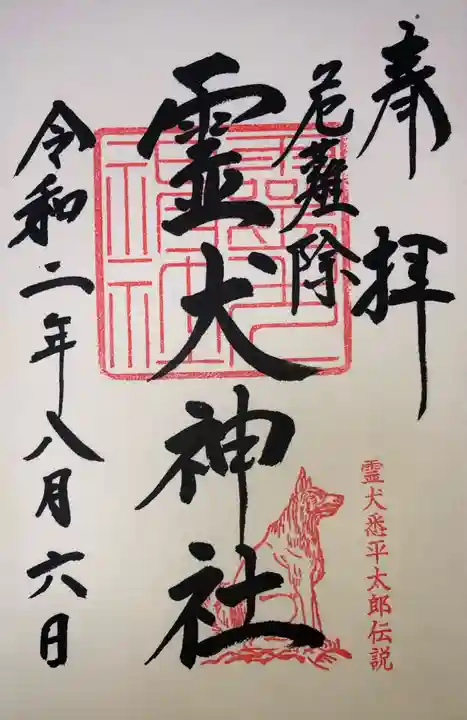 奉拝
危難除
霊犬神社
霊犬悉平太郎伝説
令和二年八月六日